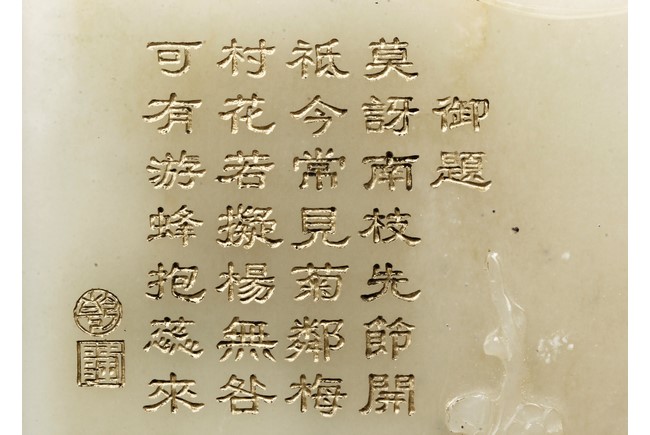 御題
莫訝南枝先節開
祗今常見菊鄰梅
村花若擬楊無咎
可有游蜂抱蕊來